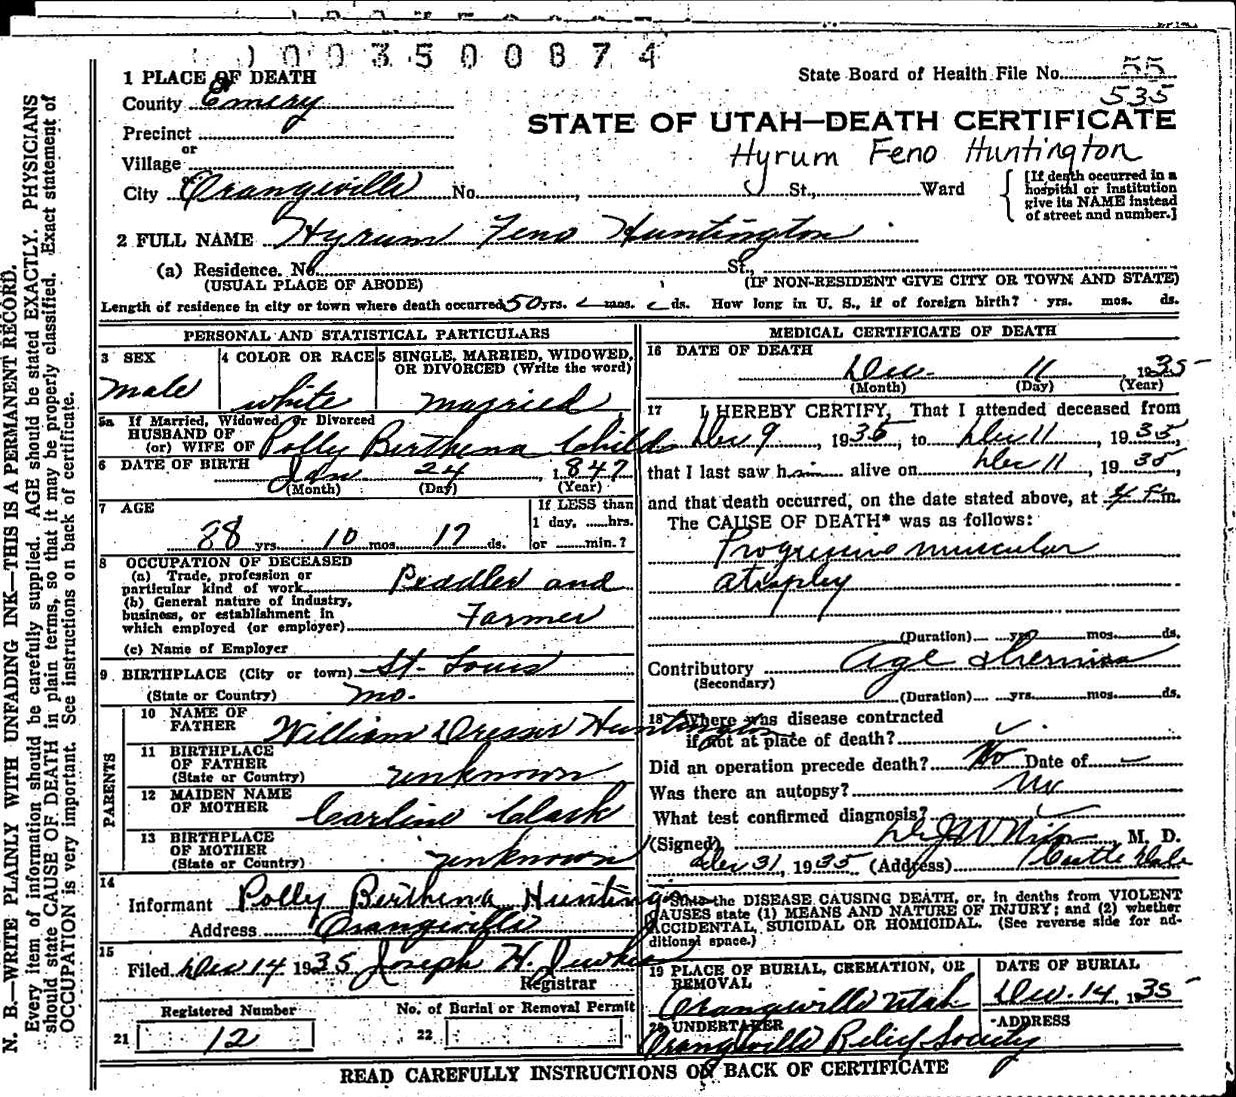 1003500874
1 PLACE OF DEATH
State Board of Health File No. 55
535
County Emery
STATE OF UTAH—DEATH CERTIFICATE
Precinct
or
Hyrum Feno Huntington
Village
or
City Orangeville No. , St., Ward
[If death occurred in a
hospital or institution
give its NAME instead
of street and number.]
2 FULL NAME Hyrum Feno Huntington
(a) Residence. No. St.,
(USUAL PLACE OF ABODE) (IF NON-RESIDENT GIVE CITY OR TOWN AND STATE)
Length of residence in city or town where death occurred 50 yrs. mos. ds. How long in U. S., if of foreign birth? yrs. mos. ds.
PERSONAL AND STATISTICAL PARTICULARS
3 SEX
male
4 COLOR OR RACE
white
5 SINGLE, MARRIED, WIDOWED,
OR DIVORCED (Write the word)
married
5a If Married, Widowed or Divorced
HUSBAND OF
(or) WIFE OF Polly Birthena Childs
6 DATE OF BIRTH Jan 24, 1847
(Month) (Day) (Year)
7 AGE
88 yrs. 10 mos. 17 ds.
If LESS than
1 day, hrs.
or min.?
8 OCCUPATION OF DECEASED
(a) Trade, profession or
particular kind of work Peddler and
(b) General nature of industry,
business, or establishment in
which employed (or employer) Farmer
(c) Name of Employer
9 BIRTHPLACE (City or town) St. Louis
(State or Country) Mo.
PARENTS
10 NAME OF
FATHER William Dresser Huntington
11 BIRTHPLACE
OF FATHER
(State or Country) unknown
12 MAIDEN NAME
OF MOTHER Carline Clark
13 BIRTHPLACE
OF MOTHER
(State or Country) unknown
14
Informant Polly Birthena Huntington
Address Orangeville
15
Filed Dec 14 1935 Joseph H.
Registrar
Registered Number
21 12
No. of Burial or Removal Permit
22
MEDICAL CERTIFICATE OF DEATH
16 DATE OF DEATH
Dec. 11, 1935
(Month) (Day) (Year)
17 I HEREBY CERTIFY, That I attended deceased from
Dec 9, 1935, to Dec 11, 1935,
that I last saw him alive on Dec 11, 1935,
and that death occurred, on the date stated above, at 4 m.
The CAUSE OF DEATH* was as follows:
Progressive muscular
atrophy
(Duration) yrs. mos. ds.
Contributory age
(Secondary)
(Duration) yrs. mos. ds.
18 Where was disease contracted
if not at place of death?
Did an operation precede death? No Date of
Was there an autopsy? No
What test confirmed diagnosis?
(Signed) M. D.
Dec 31, 1935 (Address) Castle Dale
*State the DISEASE CAUSING DEATH, or, in deaths from VIOLENT
CAUSES state (1) MEANS AND NATURE OF INJURY; and (2) whether
ACCIDENTAL, SUICIDAL OR HOMICIDAL. (See reverse side for ad-
ditional space.)
19 PLACE OF BURIAL, CREMATION, OR
REMOVAL
Orangeville Utah
DATE OF BURIAL
Dec. 14, 1935
20 UNDERTAKER
Orangeville Relief Society
ADDRESS
READ CAREFULLY INSTRUCTIONS ON BACK OF CERTIFICATE
N. B.—WRITE PLAINLY WITH UNFADING INK—THIS IS A PERMANENT RECORD.
Every item of information should be carefully supplied. AGE should be stated EXACTLY. PHYSICIANS
should state CAUSE OF DEATH in plain terms, so that it may be properly classified. Exact statement of
OCCUPATION is very important. See instructions on back of certificate.